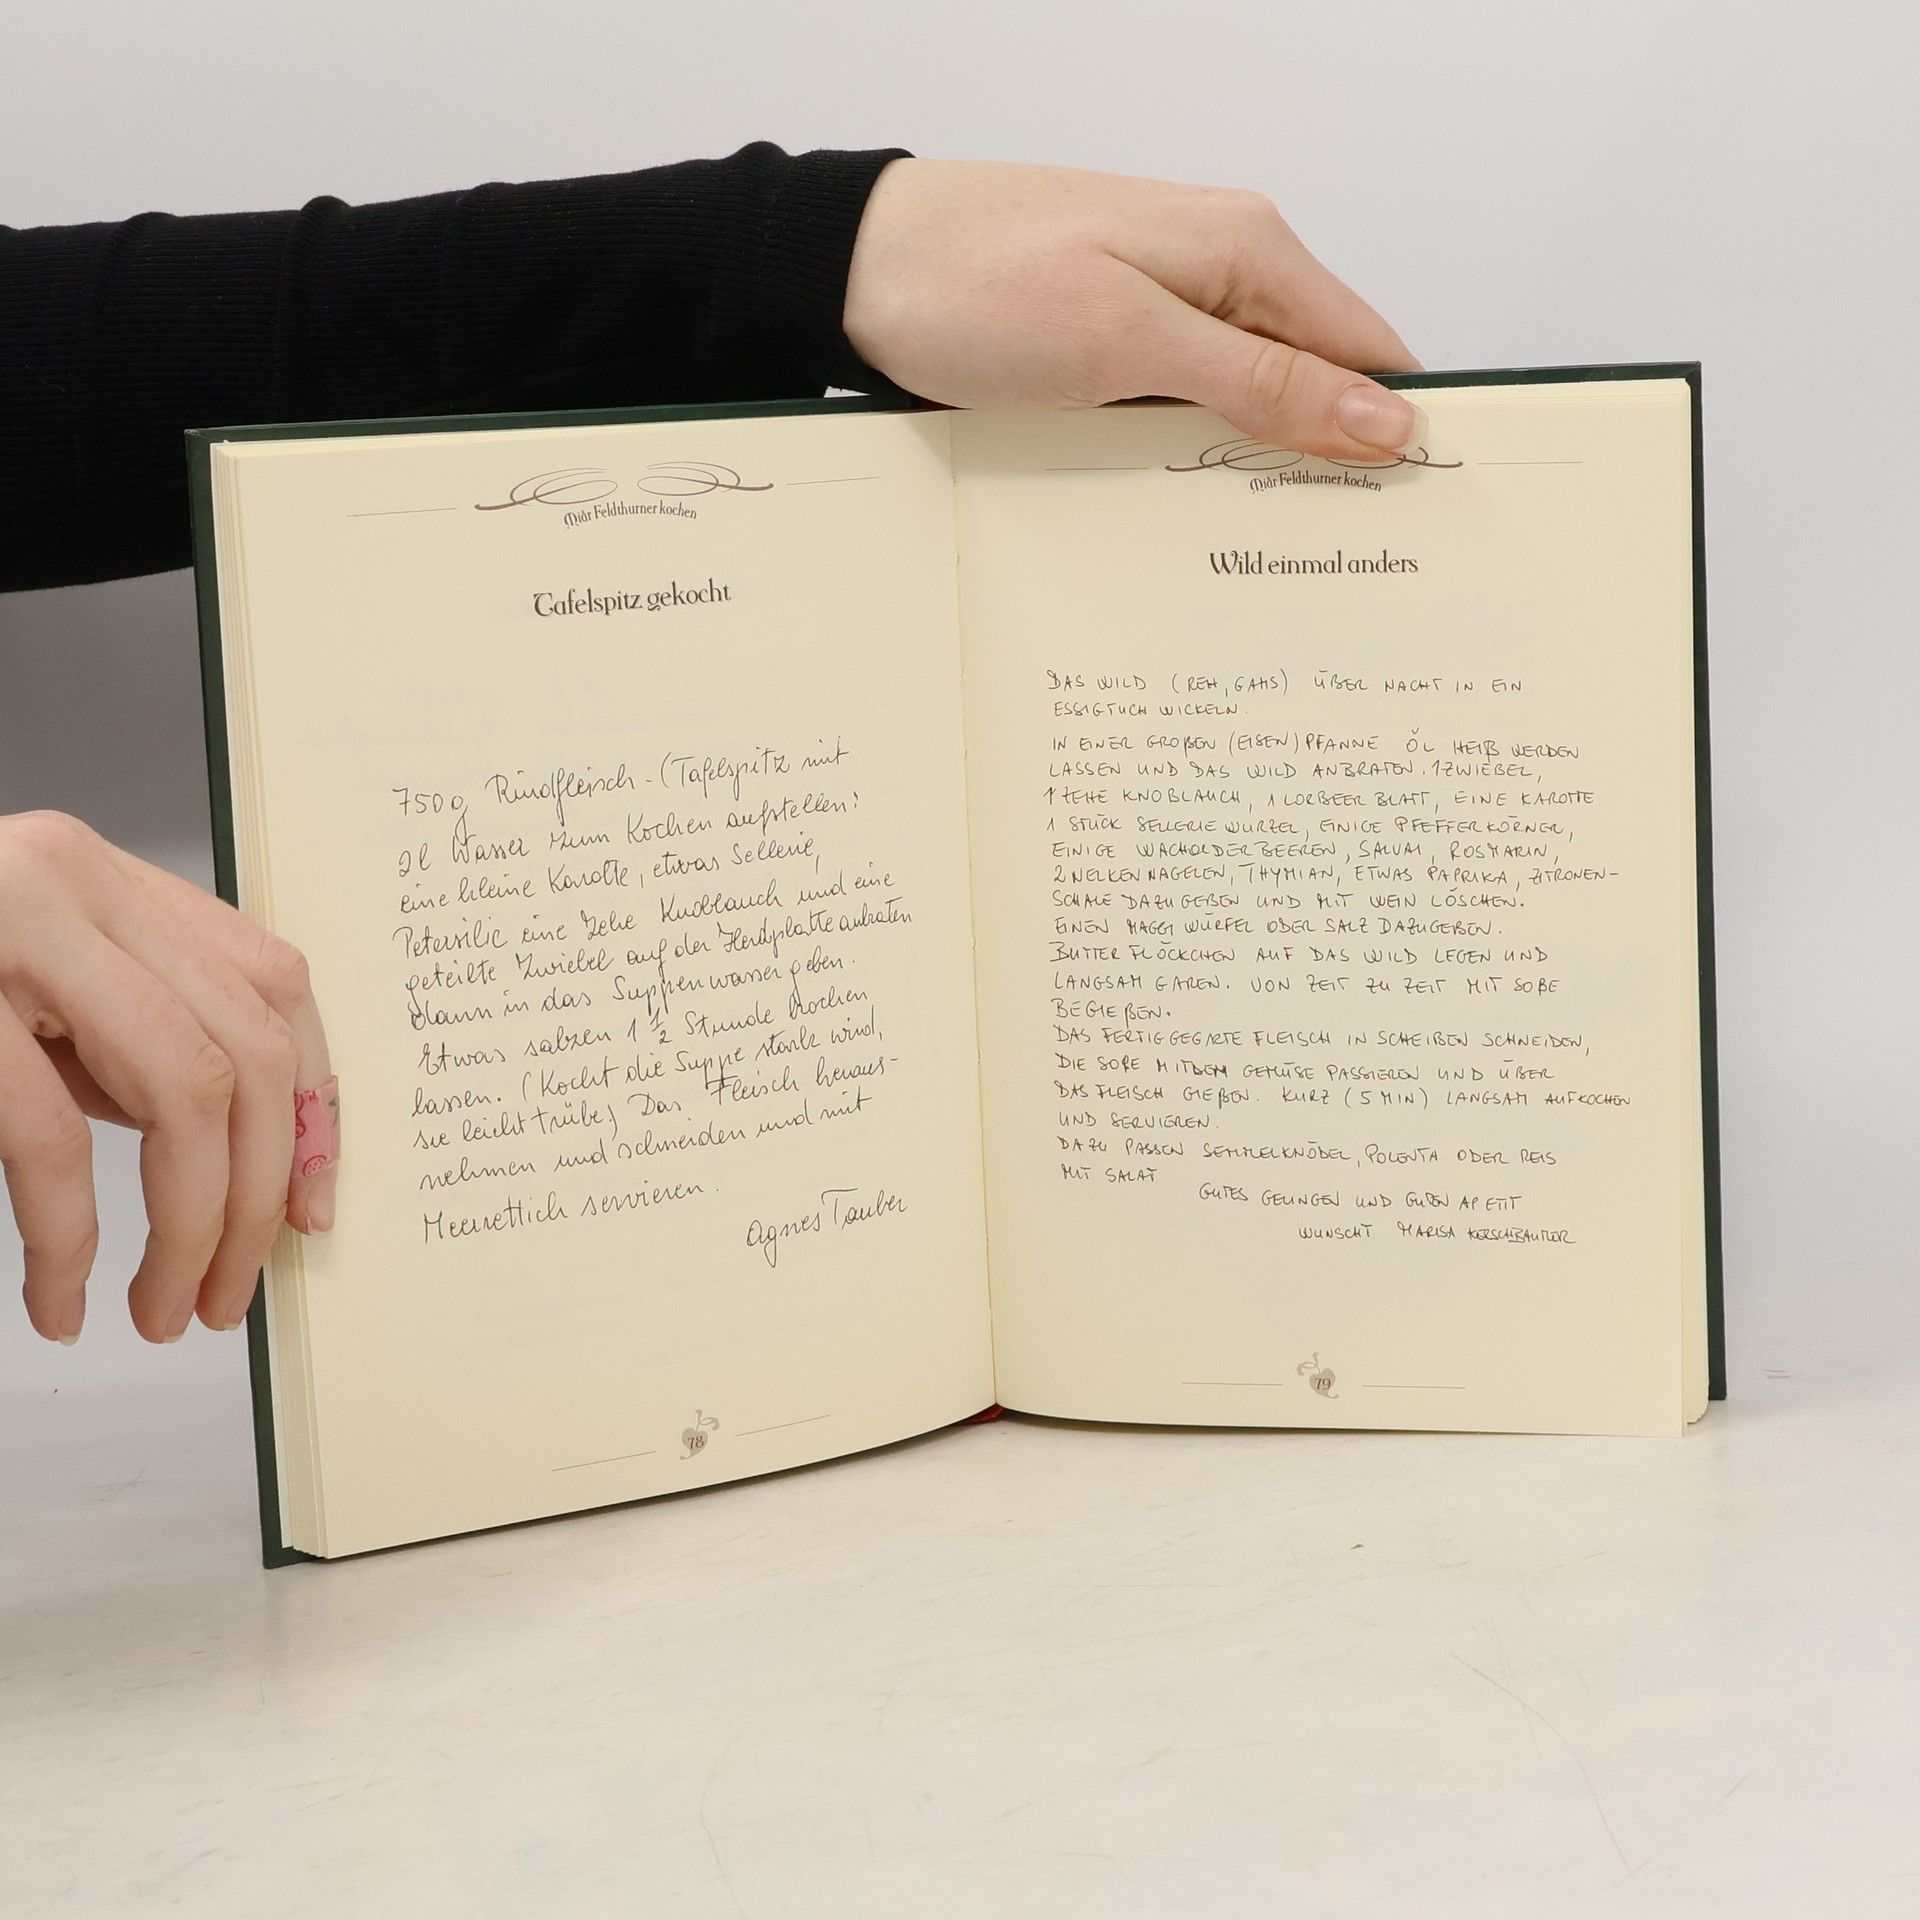 Miar Feldthurner kochen
Tafelspitz gekocht
750g Rindfleisch - (Tafelspitz mit
2l Wasser zum Kochen aufstellen:
eine kleine Karotte, etwas Sellerie,
Petersilie eine Zehe Knoblauch und eine
geteilte Zwiebel auf der Herdplatte anbraten
dann in das Suppenwasser geben.
Etwas salzen 1 1/2 Stunde kochen
lassen. (Kocht die Suppe stark wird,
sie leicht trübe.) Das Fleisch heraus-
nehmen und schneiden und mit
Meerrettich servieren.
Agnes Tauber
78
Miar Feldthurner kochen
Wild einmal anders
DAS WILD (REH, GAMS) ÜBER NACHT IN EIN
ESSIGTUCH WICKELN.
IN EINER GROßEN (EISEN) PFANNE ÖL HEIß WERDEN
LASSEN UND DAS WILD ANBRATEN. 1 ZWIEBEL,
1 ZEHE KNOBLAUCH, 1 LORBEERBLATT, EINE KAROTTE
1 STÜCK SELLERIEWURZEL, EINIGE PFEFFERKÖRNER,
EINIGE WACHOLDERBEEREN, SALVAI, ROSMARIN,
2 NELKENNAGELEN, THYMIAN, ETWAS PAPRIKA, ZITRONEN-
SCHALE DAZUGEBEN UND MIT WEIN LÖSCHEN.
EINEN MAGGI WÜRFEL ODER SALZ DAZUGEBEN.
BUTTERFLÖCKCHEN AUF DAS WILD LEGEN UND
LANGSAM GAREN. VON ZEIT ZU ZEIT MIT SOßE
BEGIEßEN.
DAS FERTIG GEGARTE FLEISCH IN SCHEIBEN SCHNEIDEN,
DIE SOßE MIT DEM GEMÜSE PASSIEREN UND ÜBER
DAS FLEISCH GIEßEN. KURZ (5 MIN) LANGSAM AUFKOCHEN
UND SERVIEREN.
DAZU PASSEN SEMMELKNÖDEL, POLENTA ODER REIS
MIT SALAT
GUTES GELINGEN UND GUTEN APETIT
WUNSCHT MARISA KERSCHBAUMER
79